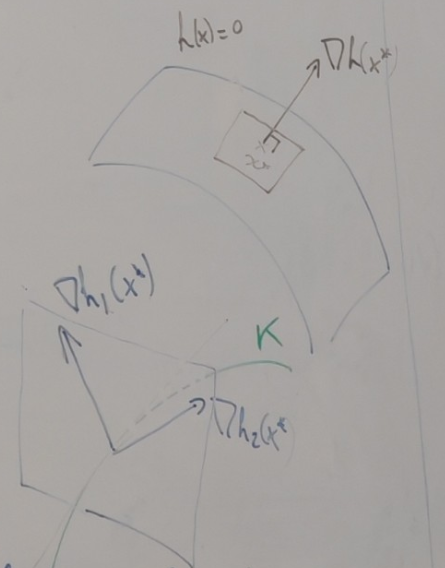 h(x)=0
∇h(x*)
x*
∇h₁(x*)
K
∇h₂(x*